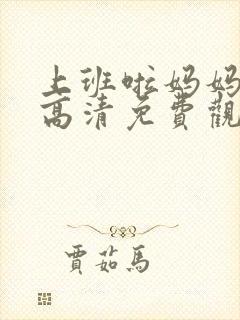 上班啦妈妈
高清免費觀
賈茹馬